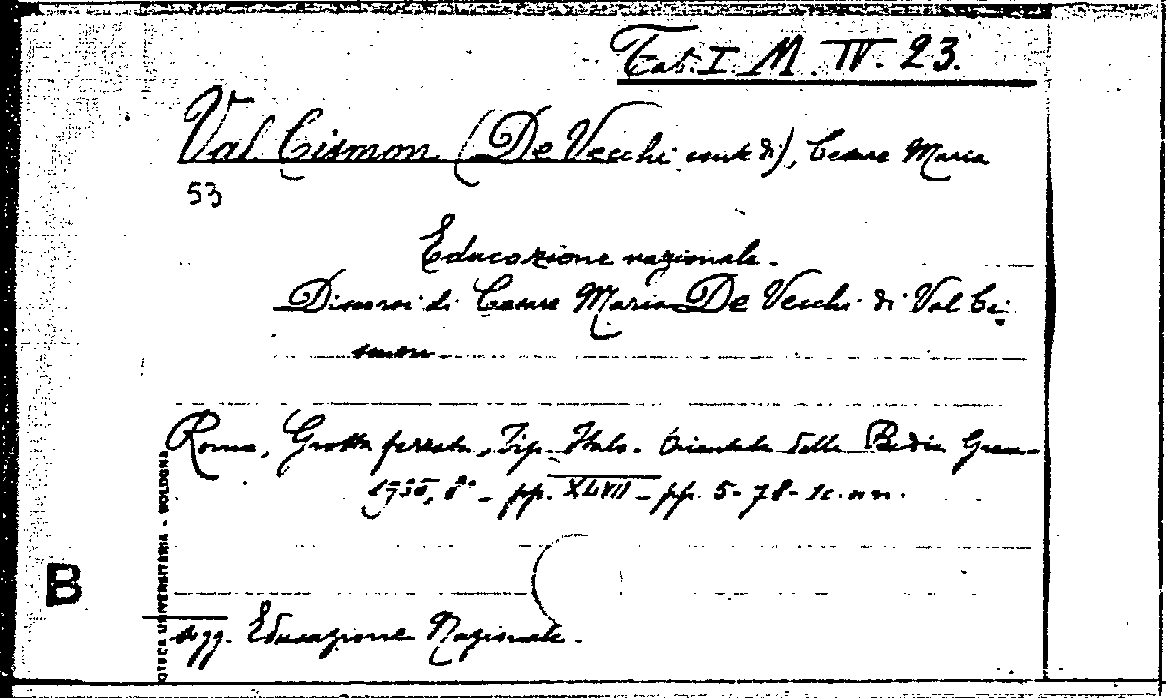 Tab. I M. IV. 23.
Val Cismon (De Vecchi conte di), Cesare Maria
53
Educazione nazionale.
Discorsi di Cesare Maria De Vecchi di Val Ci-
smon
Roma, Grottaferrata, Tip. Italo-Orientale della Badia Grec-
pp. XLVII - pp. 5-78-1c.nn.
B
OTECA UNIVERSITARIA - BOLOGNA
sogg. Educazione Nazionale.